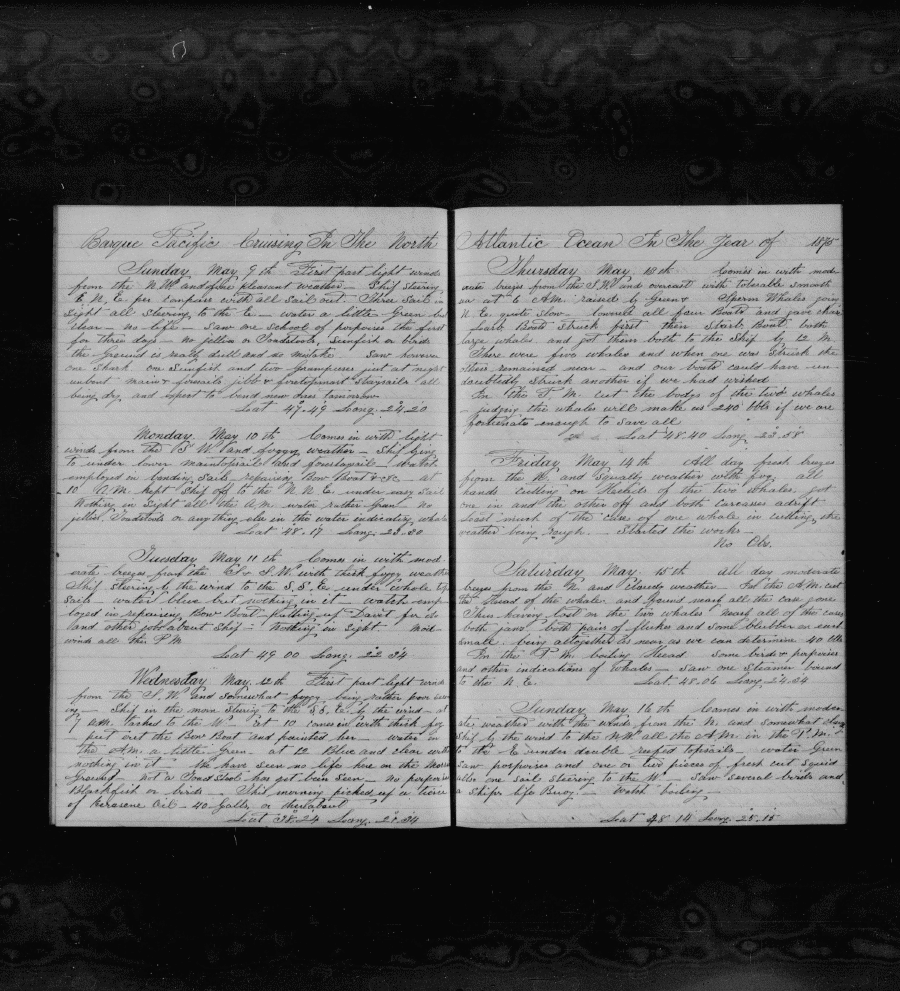 Barque Pacific Cruising In The North
Sunday May 9th First part light winds
from the N.W. and fine pleasant weather — Ship Steering
E.N.E. per compass with all sail out. Three Sail in
Sight all Steering to the E — water a little Green but
Clear — no life — Saw one school of porpoises the first
for three days — no jellies or Toadstools, Sunfish or birds
the Ground is really dull and no mistake Saw however
one Shark one Sunfish and two grampuses just at night
unbent main & foresails jibb & foretopmast Staysails all
being dry and expect to bend new ones tomorrow
Lat 47.49 Long. 24.20
Monday May 10th Comes in with light
winds from the S.W. and foggy weather — Ship lying
to under lower maintopsail and foretopsail — watch
employed in sails repairing Bow Boat &c — at
10 A.M. kept Ship off to the N.N.E. under easy Sail
Nothing in Sight all the A.M. water rather Green no
jellies Toadstools or anything else in the water indicating whales
Lat 48.17 Long. 23.30
Tuesday May 11th Comes in with mod-
erate breezes from the S.W. with thick foggy weather
Ship Steering by the wind to the S.S.E. under whole top
Sails water blue but nothing in it — watch emp-
loyed in repairing Bow Boat putting up Davit for do
and other jobs about Ship — Nothing in Sight. Mod-
winds all the P.M.
Lat 49.00 Long. 22.34
Wednesday May 12th First part light winds
from the S.W. and Somewhat foggy being rather poor see
ing — Ship in the morn Steering to the S.S.E. by the wind — at
A.M. tacked to the W. at 10 comes in with thick fog
put out the Bow Boat and painted her — water in
the A.M. a little Green — at 12 Blue and clear with
nothing in it We have seen no life here on the
Ground Not a Toad Stool has yet been Seen — no porpoises
Blackfish or birds — This morning picked up a tierce
of Kerosene Oil — 40 Galls, or thereabout
Lat 38.24 Long. 21.34
Atlantic Ocean In The Year of 1875
Thursday May 13th Comes in with mode
rate breezes from the S.W. and overcast with tolerable smooth
at 6 A.M. raised 5 Green & Sperm Whales going
N.E. quite slow — lowered all four Boats and gave chase
Larb Boat Struck first then Starb Boat both
large whales and got them both to the Ship by 12 M.
There were five whales and when one was Struck the
others remained near — and our boats could have un-
doubtedly Struck another if we had wished
In the P.M. cut the bodys of the two whales
— judging the whales will make us 240 bbls if we are
fortunate enough to save all
Lat 48.40 Long. 23.58
Friday May 14th All day fresh breezes
from the W. and Squally weather with fog all
hands cutting on the two whales, got
one in and the other off and both carcases adrift
Lost much of the case of one whale in cutting the
weather being rough. Started the works —
No Obs.
Saturday May 15th all day moderate
breezes from the N and Cloudy weather In the A.M. cut
the Head of the whale and found nearly all the case gone
Thus having lost on the two whales nearly all of the cases
both jaws both pair of flukes and some blubber on each
small, being altogether as near as we can determine 40 bbls
In the P.M. boiling Head Some birds & porpoises
and other indications of Whales — Saw one Steamer bound
to the N.E. Lat. 48.06 Long. 24.24
Sunday May 16th Comes in with moder-
ate weather with the winds from the N. and Somewhat
Ship by the wind to the N.W. all the A.M. in the P.M.
to the E under double reefed topsails water Green
Saw porpoises and one or two pieces of fresh cut squid
also one sail steering to the W — Saw several birds and
a Ships life Buoy — Watch boiling —
Lat 48 14 Long. 25.15